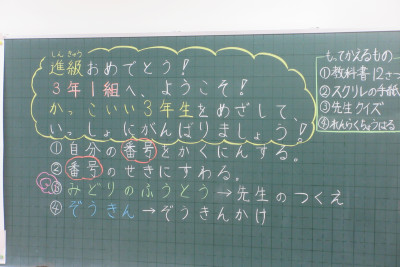 しん きゅう
進級おめでとう!
3年1組へ、ようこそ!
かっこいい3年生をめざして、
いっしょにがんばりましょう!
①自分の番号をかくにんする。
②番号のせきにすわる。
③みどりのふうとう→先生のつくえ
④ぞうきん→ぞうきんかけ
もってかえるもの
①教科書12さつ
②スクリレの手紙
③先生クイズ
④れんらくちょうはる